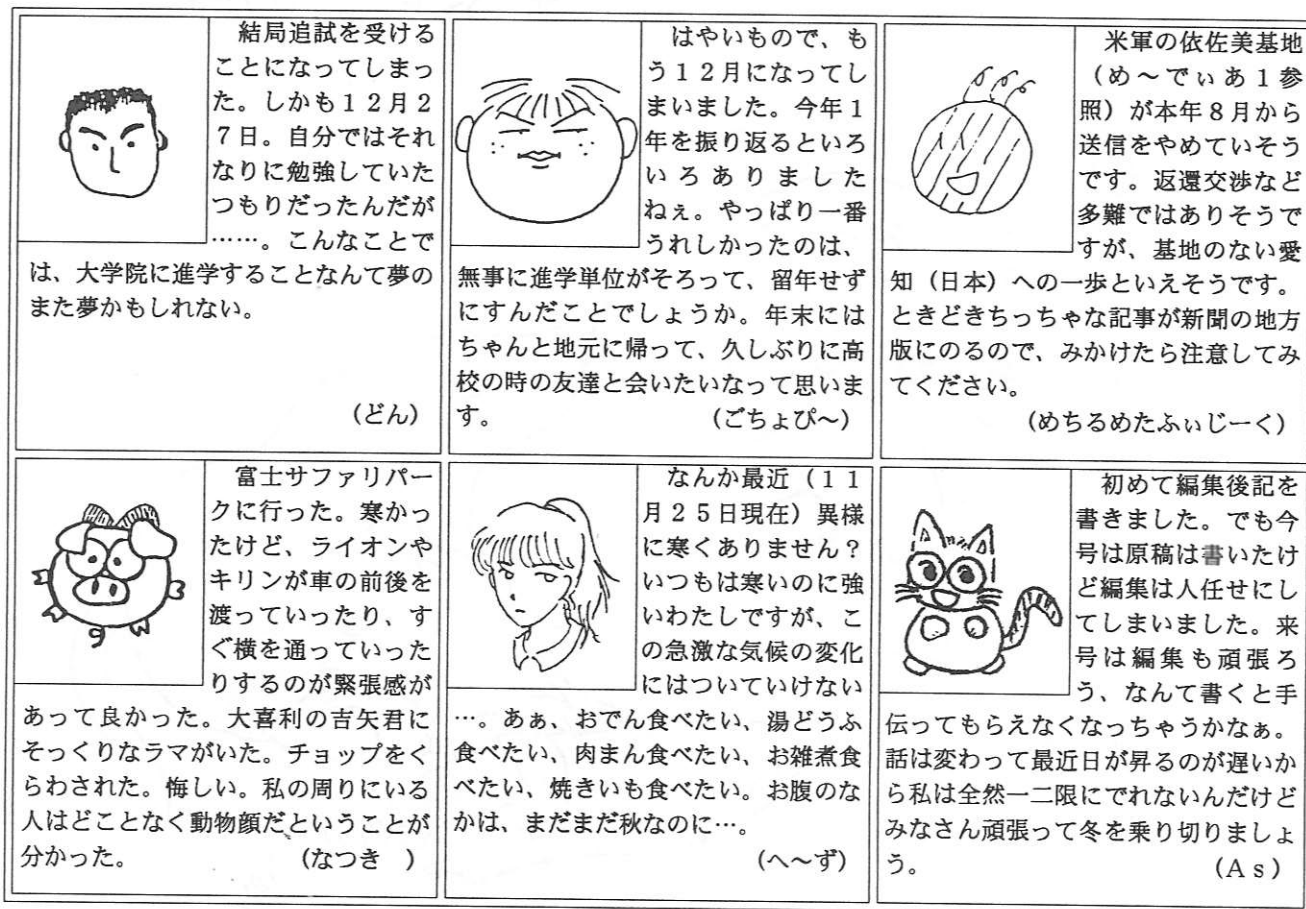 結局追試を受ける
ことになってしまっ
た。しかも１２月２
７日。自分ではそれ
なりに勉強していた
つもりだったんだが
……。こんなことで
は、大学院に進学することなんて夢の
また夢かもしれない。
（どん）
はやいもので、も
う１２月になってし
まいました。今年１
年を振り返るといろ
いろありました
ねぇ。やっぱり一番
うれしかったのは、
無事に進学単位がそろって、留年せず
にすんだことでしょうか。年末には
ちゃんと地元に帰って、久しぶりに高
校の時の友達と会いたいなって思いま
す。（ごちょぴ～）
米軍の依佐美基地
（め～でぃあ１参
照）が本年８月から
送信をやめていそう
です。返還交渉など
多難ではありそうで
すが、基地のない愛
知（日本）への一歩といえそうです。
ときどきちっちゃな記事が新聞の地方
版にのるので、みかけたら注意してみ
てください。
（めちるめたふぃじーく）
富士サファリパー
クに行った。寒かっ
たけど、ライオンや
キリンが車の前後を
渡っていったり、す
ぐ横を通っていった
りするのが緊張感が
あって良かった。大喜利の吉矢君に
そっくりなラマがいた。チョップをく
らわされた。悔しい。私の周りにいる
人はどことなく動物顔だということが
分かった。（なつき　）
なんか最近（１１
月２５日現在）異様
に寒くありません？
いつもは寒いのに強
いわたしですが、こ
の急激な気候の変化
にはついていけない
…。あぁ、おでん食べたい、湯どうふ
食べたい、肉まん食べたい、お雑煮食
べたい、焼きいも食べたい。お腹のな
かは、まだまだ秋なのに…。
（へ～ず）
初めて編集後記を
書きました。でも今
号は原稿は書いたけ
ど編集は人任せにし
てしまいました。来
号は編集も頑張ろ
う、なんて書くと手
伝ってもらえなくなっちゃうかなぁ。
話は変わって最近日が昇るのが遅いか
ら私は全然一二限にでれないんだけど
みなさん頑張って冬を乗り切りましょ
う。（Ａｓ）